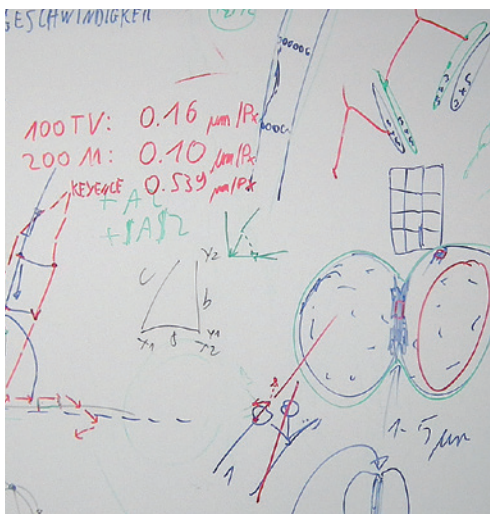 GESCHWINDIGKEI
100TV: 0.16 µm/Px
200M: 0.10 µm/Px
KEYENCE 0.539 µm/Px
+$A$2
Y2
c
b
X1
Y1
X2
1-5 µm
1